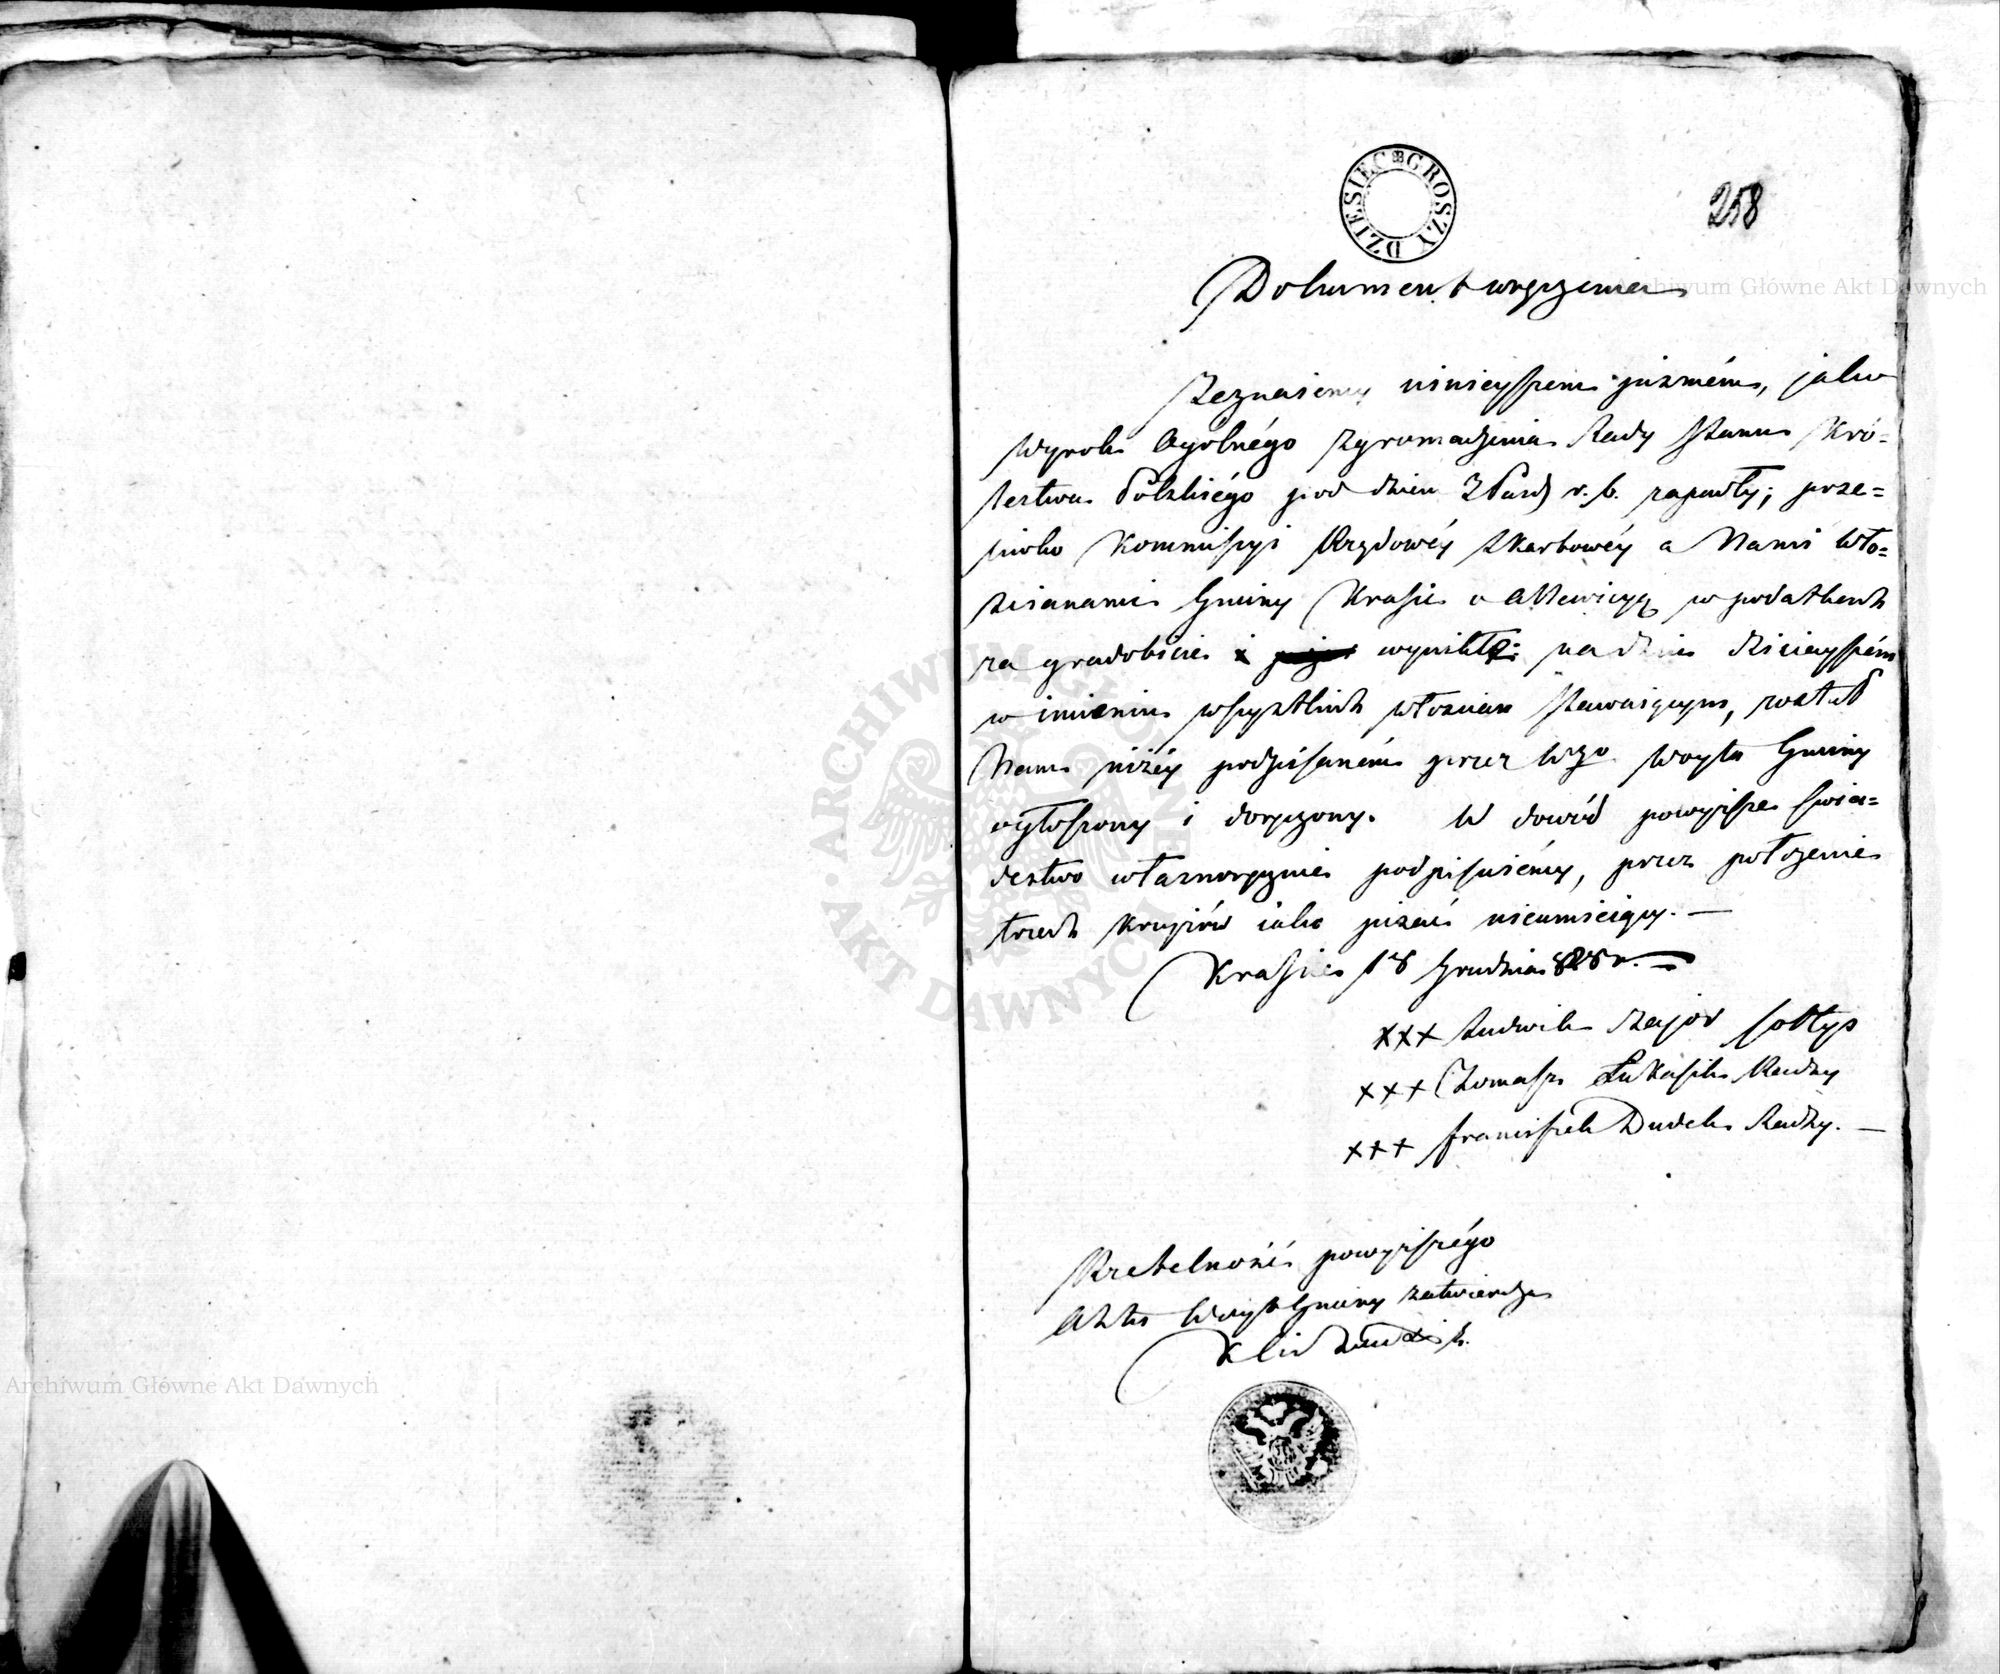 DZIESIĘĆ GROSZY
258
Dokument wręczenia
Zeznaiemy ninieyszem pismém, jako
Wyrok Ogolnégo Zgromadzenia Rady Stanu Kró=
lestwa Polskiégo pod dniem r. b. zapadły; prze=
ciwko Kommissyi Rządowéy Skarbowéy a Nami Wło=
scianami Gminy Krasne o w podatkach
za gradobicie i wynikłą: na dniu dzisieyszém
w imieniu wszystkich włoscian stawaiącym, został
Nam niżéy podpisaném przez Wgo Woyta Gminy
ogłoszony i doręczony. W dowód powyższe swia=
dectwo własnoręcznie podpisuiémy, przez położenie
trzech krzyżów iako pisać nieumieiący. —
18 Grudnia 828 r. —
xxx Ludwik Zając sołtys
xxx Tomasz Łukasik Radny
xxx Franciszek Dudek Radny. —
Rzetelność powyższégo
Aktu Woyt Gminy zatwierdza
Archiwum Główne Akt Dawnych
Archiwum Główne Akt Dawnych
ARCHIWUM GŁÓWNE AKT DAWNYCH